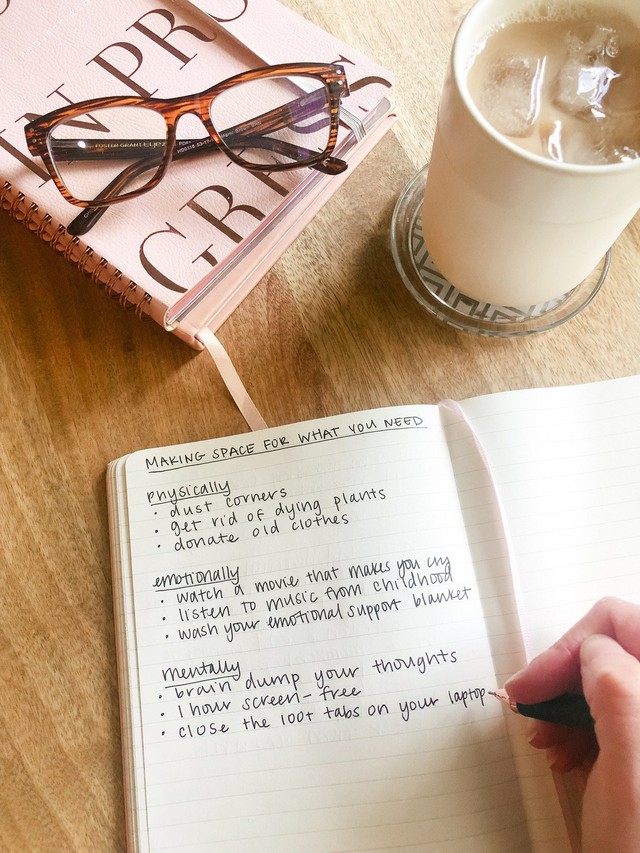 IN PRO
GR
SS
FOSTER GRANT
MAKING SPACE FOR WHAT YOU NEED
physically
• dust corners
• get rid of dying plants
• donate old clothes
emotionally
• watch a movie that makes you cry
• listen to music from childhood
• wash your emotional support blanket
mentally
• brain dump your thoughts
• 1 hour screen-free
• close the 100+ tabs on your laptop